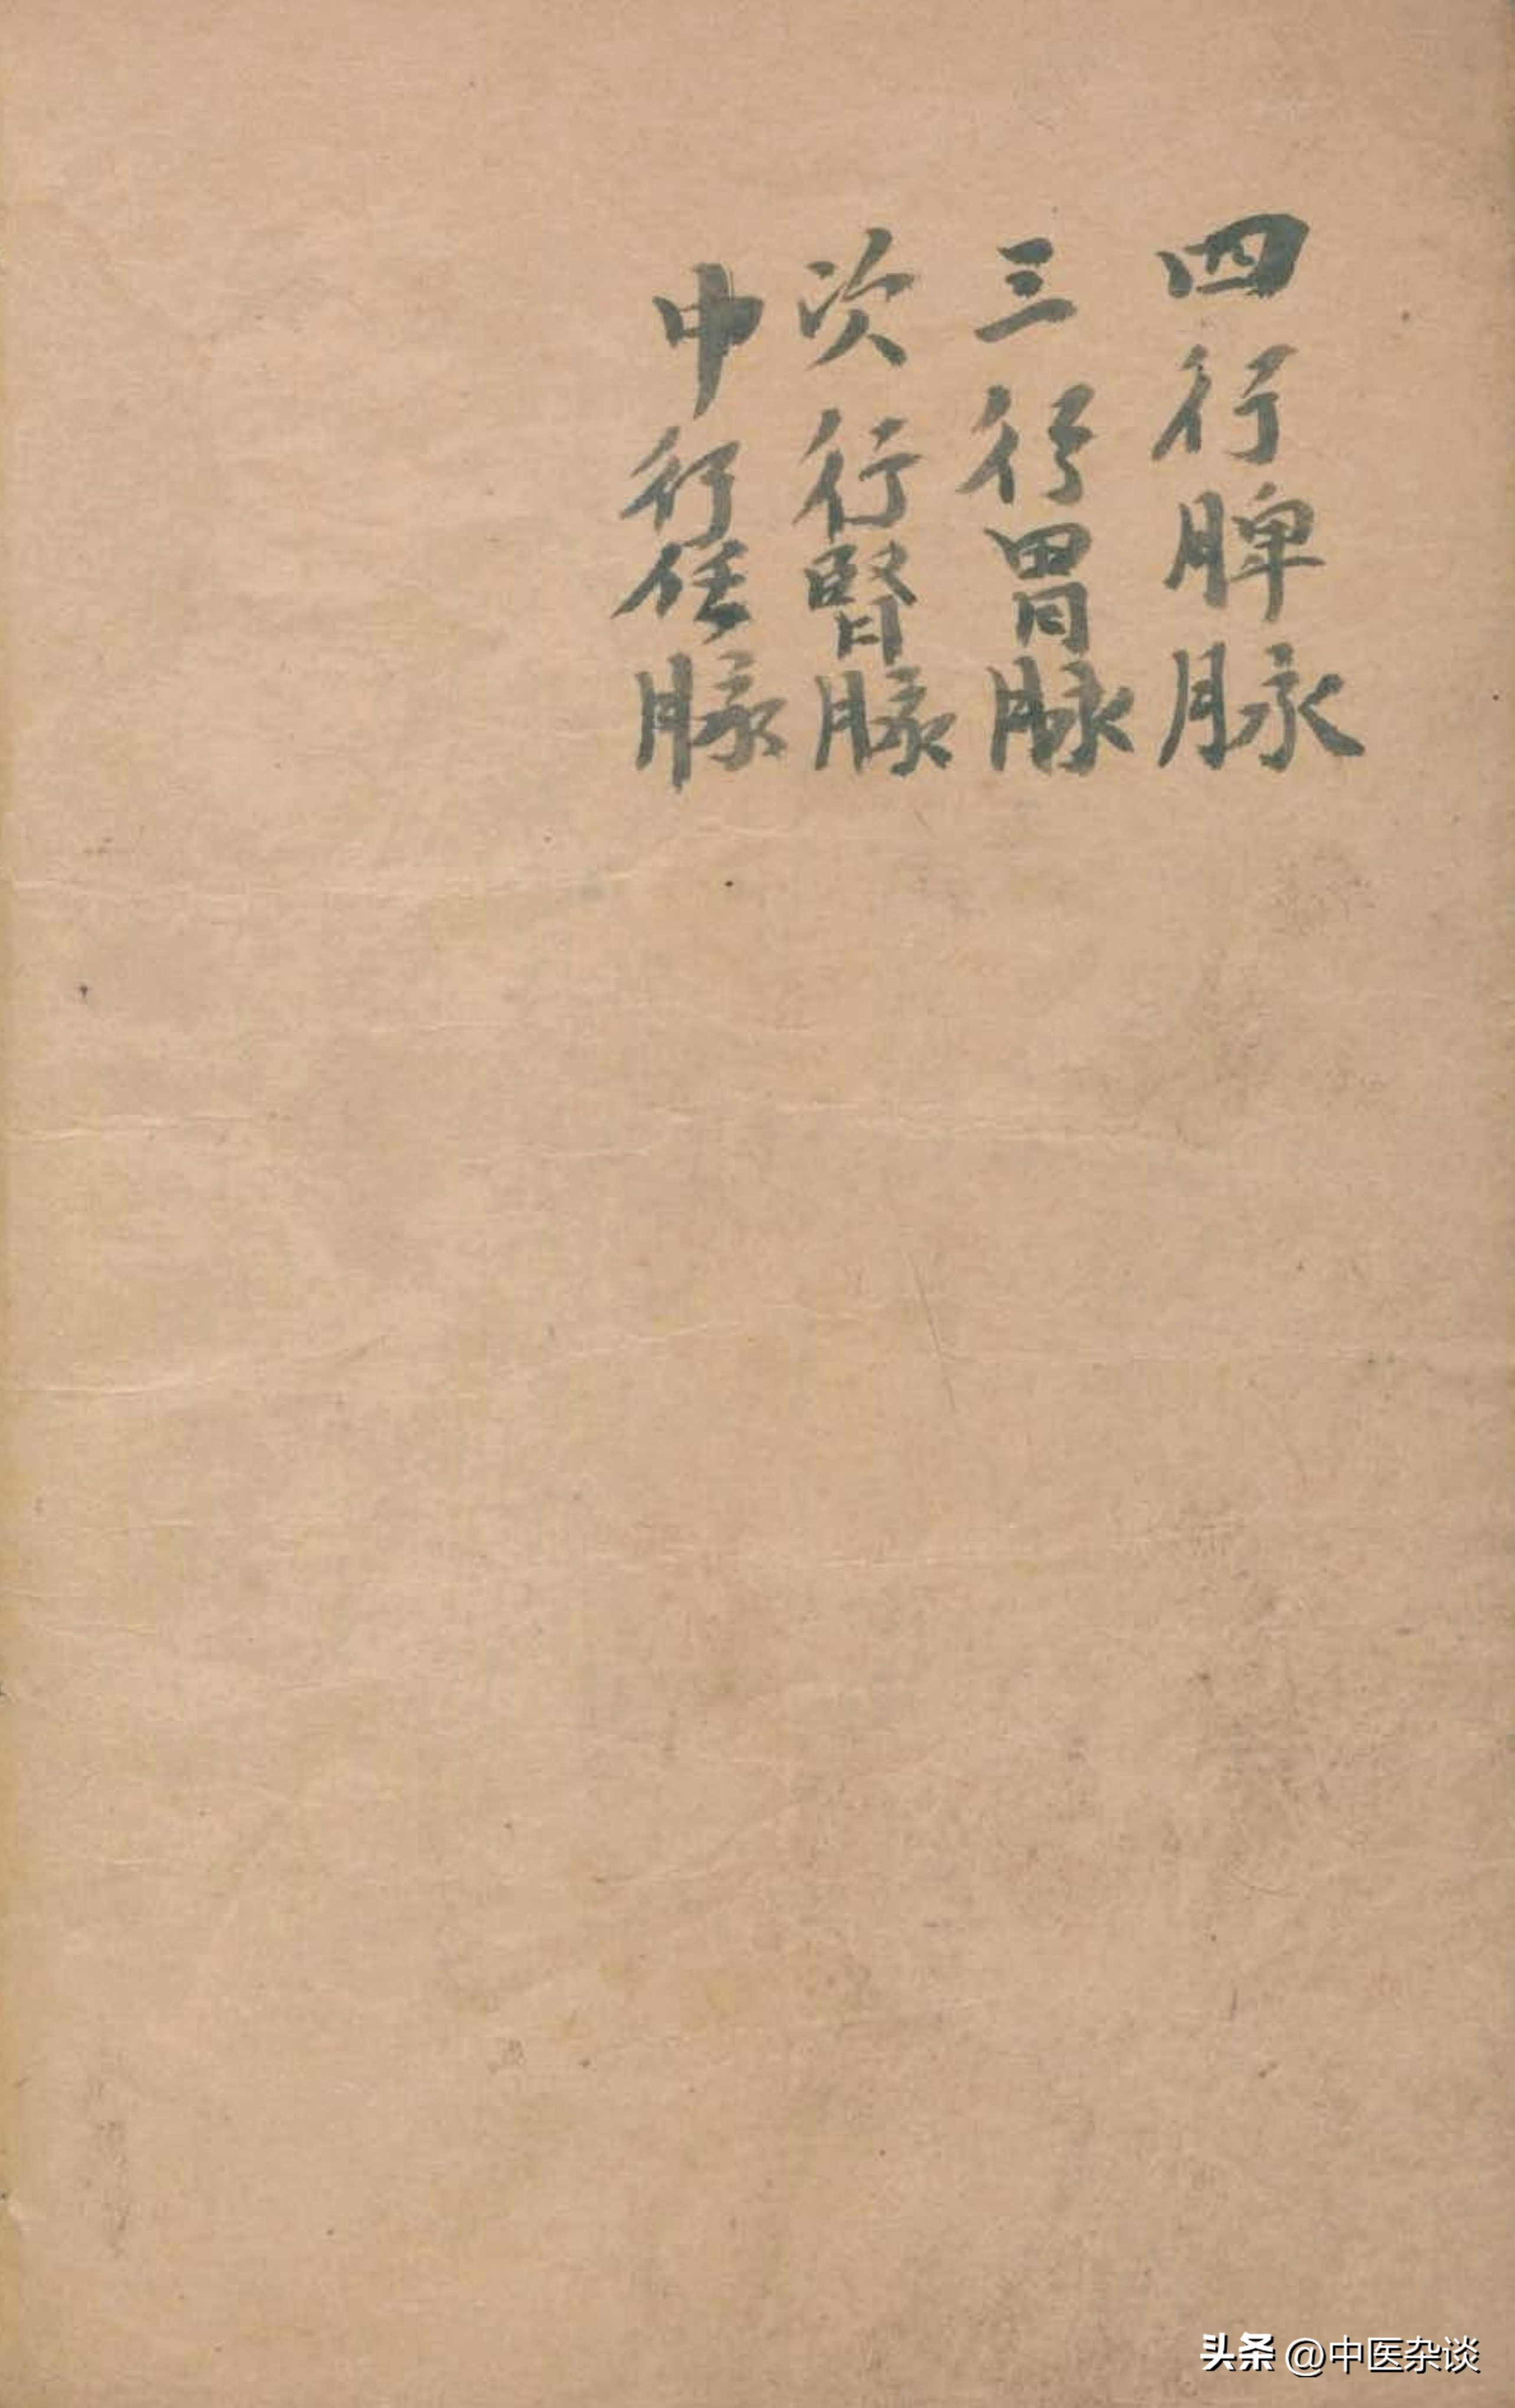 四行脾脉
三行胃脉
次行腎脉
中行任脉
头条 @中医杂谈